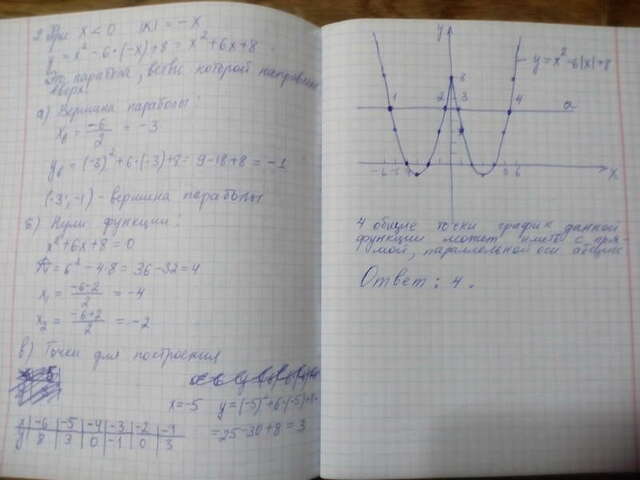 2. При x < 0 |x| = -x
y = x² - 6·(-x) + 8 = x² + 6x + 8
Это парабола, ветви которой направлены
вверх.
а) Вершина параболы:
x₀ = -6/2 = -3
y₀ = (-3)² + 6·(-3) + 8 = 9 - 18 + 8 = -1
(-3; -1) - вершина параболы
б) Нули функции:
x² + 6x + 8 = 0
D = 6² - 4·8 = 36 - 32 = 4
x₁ = (-6-2)/2 = -4
x₂ = (-6+2)/2 = -2
в) Точки для построения
x = -5 y = (-5)² + 6·(-5) + 8 =
= 25 - 30 + 8 = 3
x | -6 | -5 | -4 | -3 | -2 | -1
y | 8 | 3 | 0 | -1 | 0 | 3
y
y = x² - 6|x| + 8
8
1 2 3 4 a
-6 -5 5 6 x
4 общие точки график данной
функции может иметь с пря-
мой, параллельной оси абсцисс
Ответ: 4.